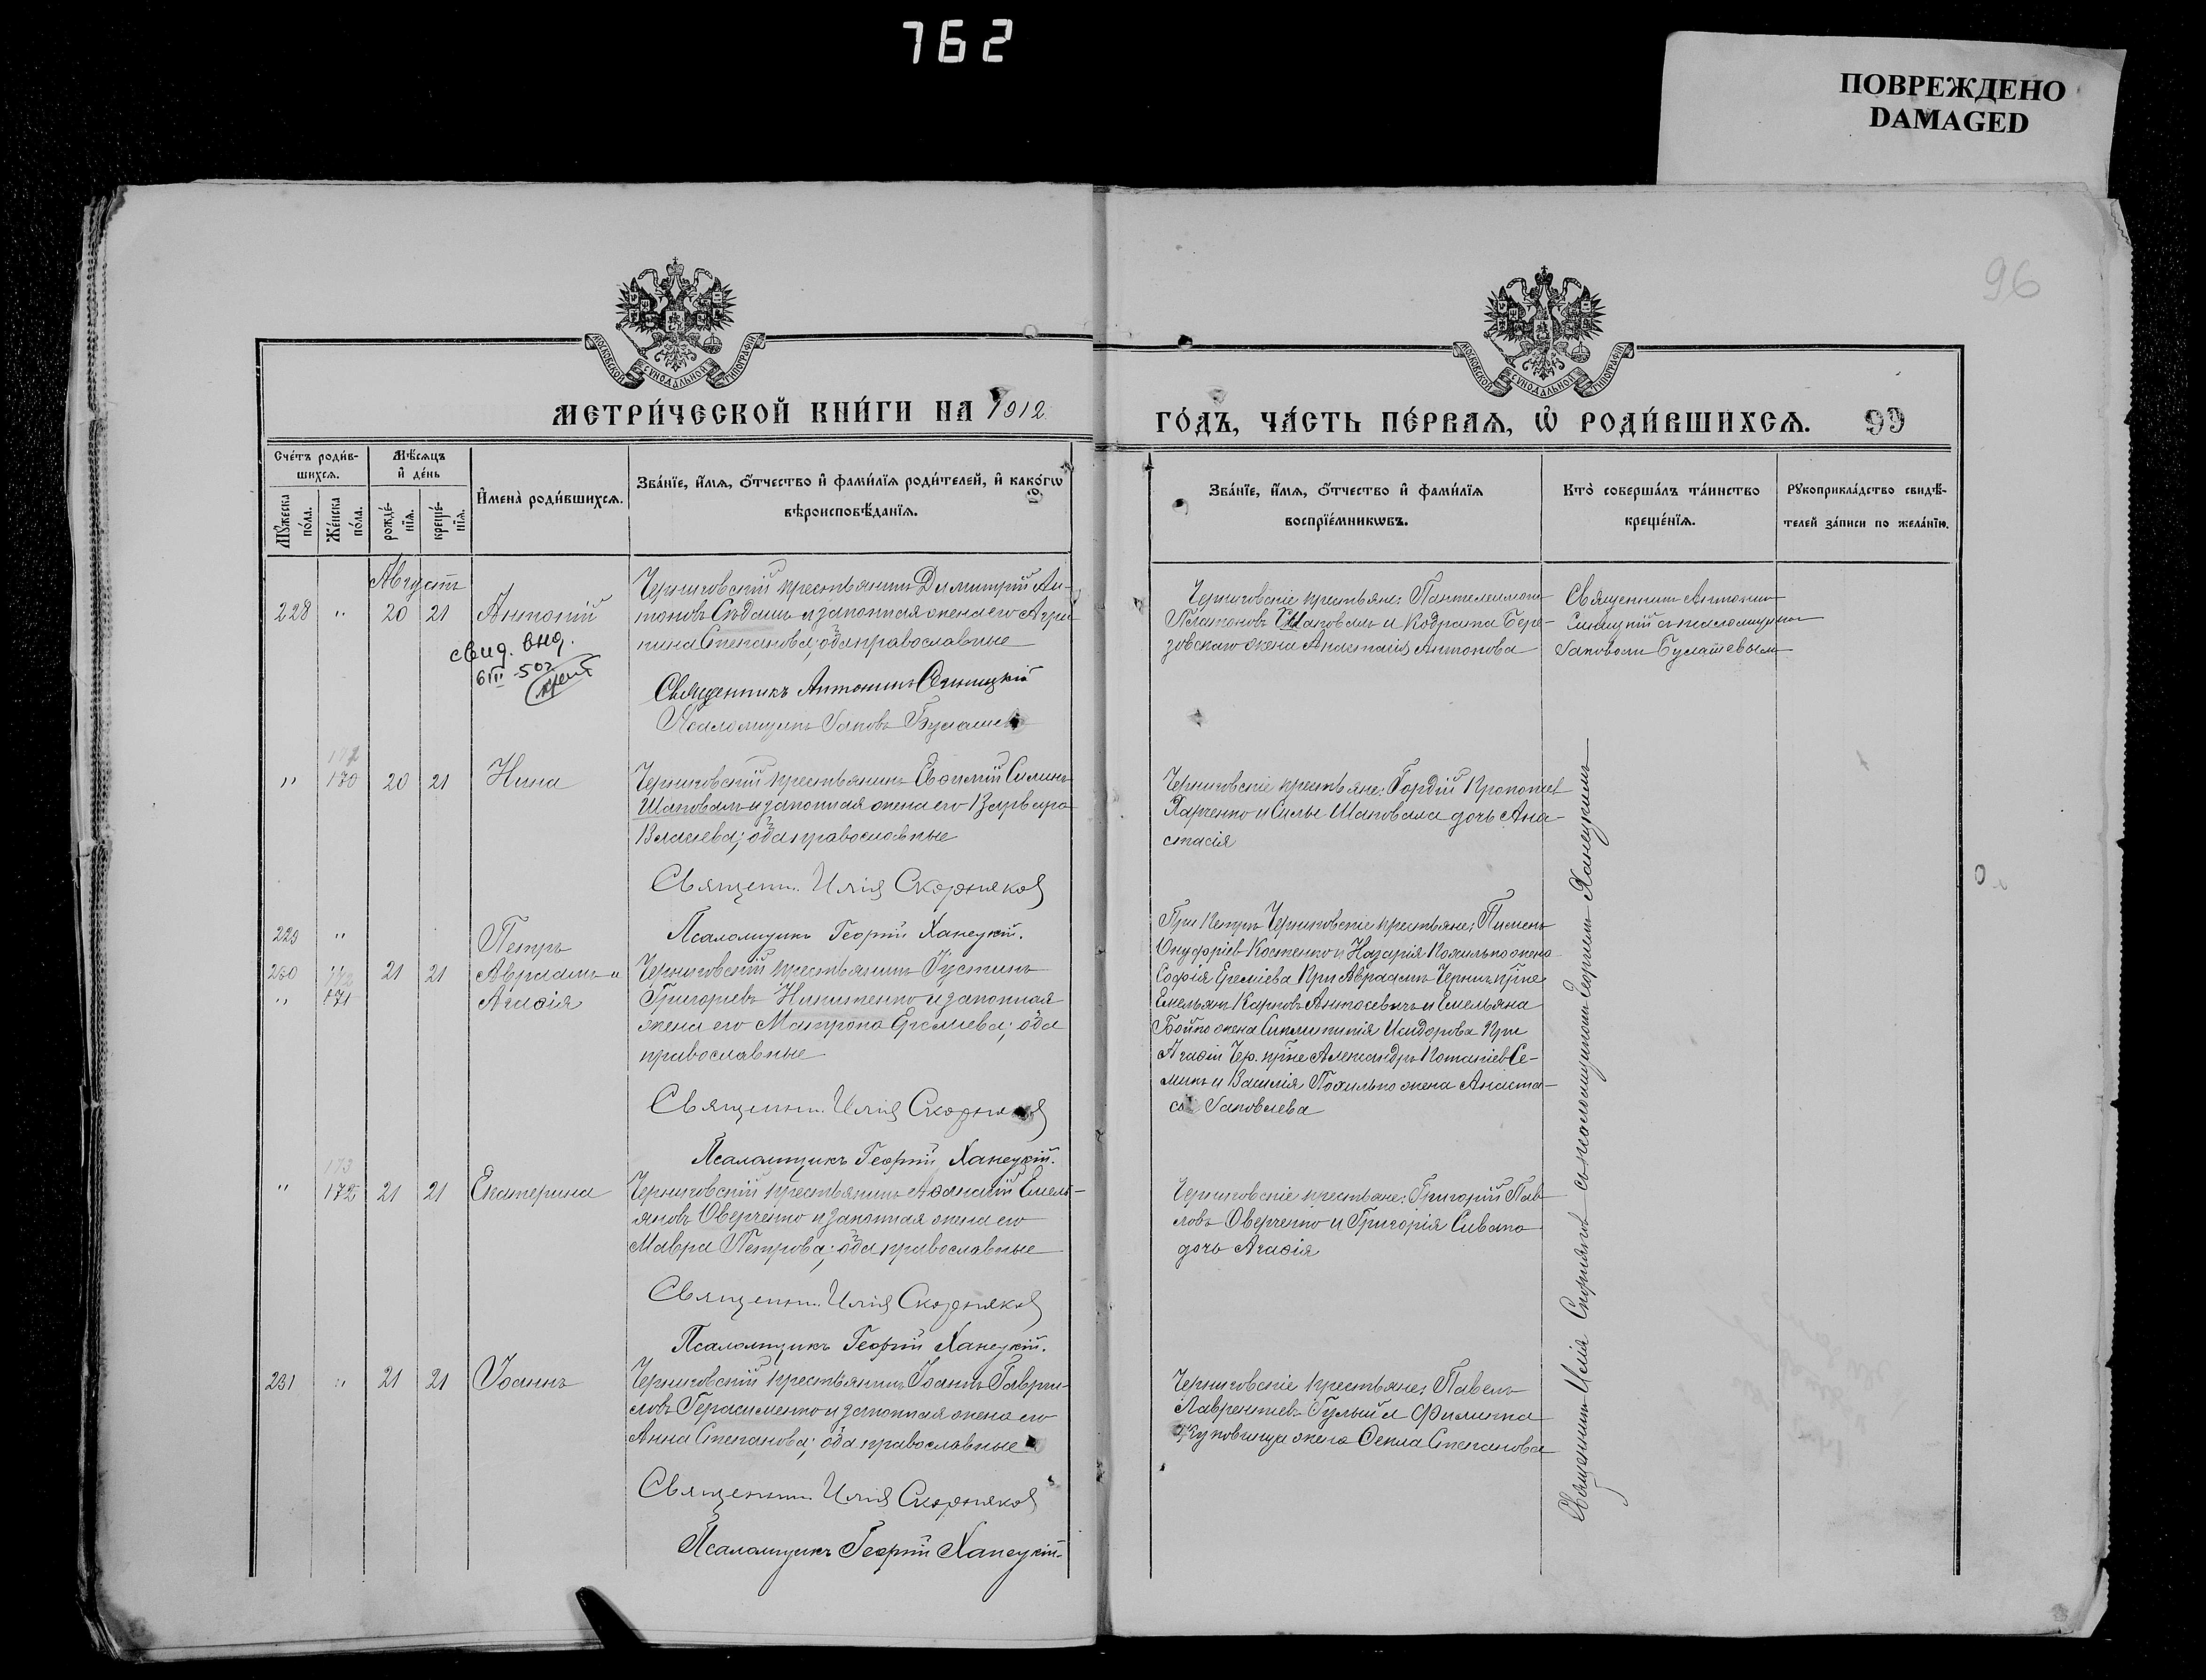 762
ПОВРЕЖДЕНО
DAMAGED
96
МОСКОВСКОЙ СѴНОДАЛЬНОЙ ТИПОГРАФІИ
МОСКОВСКОЙ СѴНОДАЛЬНОЙ ТИПОГРАФІИ
МЕТРИ́ЧЕСКОЙ КНИ́ГИ НА 1912
ГО́ДЪ, ЧА́СТЬ ПЕ́РВАѦ, Ѡ҆ РОДИ́ВШИХСѦ. 99
Сче́тъ роди́в-
шихсѧ.
Мѣ́сѧцъ
и҆ де́нь
Мꙋ́жеска
по́ла.
Же́нска
по́ла.
рожде́-
нїѧ.
креще́-
нїѧ.
И҆мена̀ роди́вшихсѧ.
Зва́нїе, и҆́мѧ, ѻ҆́тчество и҆ фами́лїѧ роди́телей, и҆ како́гѡ
вѣроисповѣ́данїѧ.
Зва́нїе, и҆́мѧ, ѻ҆́тчество и҆ фами́лїѧ
воспрїе́мникѡвъ.
Кто̀ соверша́лъ та́инство
креще́нїѧ.
Рꙋкоприкла́дство свидѣ́-
телей за́писи по жела́нїю.
Августъ
228 " 20 21 Антоній
Черниговскій крестьянинъ Димитрій Ан-
тоновъ Сѣдашъ и законная жена его Агри-
пина Степанова; оба православные
свид. выд.
6 III 50г
Священникъ Антонинъ Синицкій
Псаломщикъ Іаковъ Булашев
Черниговскіе крестьяне: Пантелеимонъ
Платоновъ Шаповалъ и Кодрата Бере-
зовскаго жена Анастасія Антонова
Священникъ Антонинъ
Синицкій съ псаломщикомъ
Іаковомъ Булашевымъ
171
" 170 20 21 Нина
Черниговскій крестьянинъ Евѳимій Силинъ
Шаповалъ и законная жена его Варвара
Власіева; оба православные
Священн. Илія Скорняков
Псаломщикъ Георгій Ханецкій.
Черниговскіе крестьяне: Гордій Прокопіев
Харченко и Силы Шаповала дочь Ана-
стасія
229 " Петръ
230 172 21 21 Авраамъ и
" 171 Агаѳія
Черниговскій крестьянинъ Іустинъ
Григорьевъ Никитенко и законная
жена его Матрона Ереміева; оба
православные
Священн. Илія Скорняков
Псаломщикъ Георгій Ханецкій.
При Петрѣ Черниговскіе крестьяне: Пименъ
Онуфріев Костенко и Назарія Похилько жена
Софія Ереміева При Авраамѣ Черниг. кр-не
Емельянъ Карповъ Антосевичъ и Емельяна
Бойко жена Исидорова При
Агаѳіи Чер. кр-не Александръ Потапіев Се-
микъ и Василія Похилько жена Анаста-
сія Іаковлева
173
" 172 21 21 Екатерина
Черниговскій крестьянинъ Аѳанасій Емель-
яновъ Оверченко и законная жена его
Мавра Петрова; оба православные
Священн. Илія Скорняков
Псаломщикъ Георгій Ханецкій.
Черниговскіе крестьяне: Григорій Пав-
ловъ Оверченко и Григорія Сивака
дочь Агаѳія
231 " 21 21 Іоаннъ
Черниговскій крестьянинъ Іоаннъ Гаври-
ловъ Герасименко и законная жена его
Анна Степанова; оба православные
Священн. Илія Скорняков
Псаломщикъ Георгій Ханецкій
Черниговскіе крестьяне: Павелъ
Лаврентіевъ Гулый и Филиппа
жена Ѳекла Степанова
Священникъ Илія Скорняковъ съ псаломщикомъ Георгіемъ Ханецкимъ